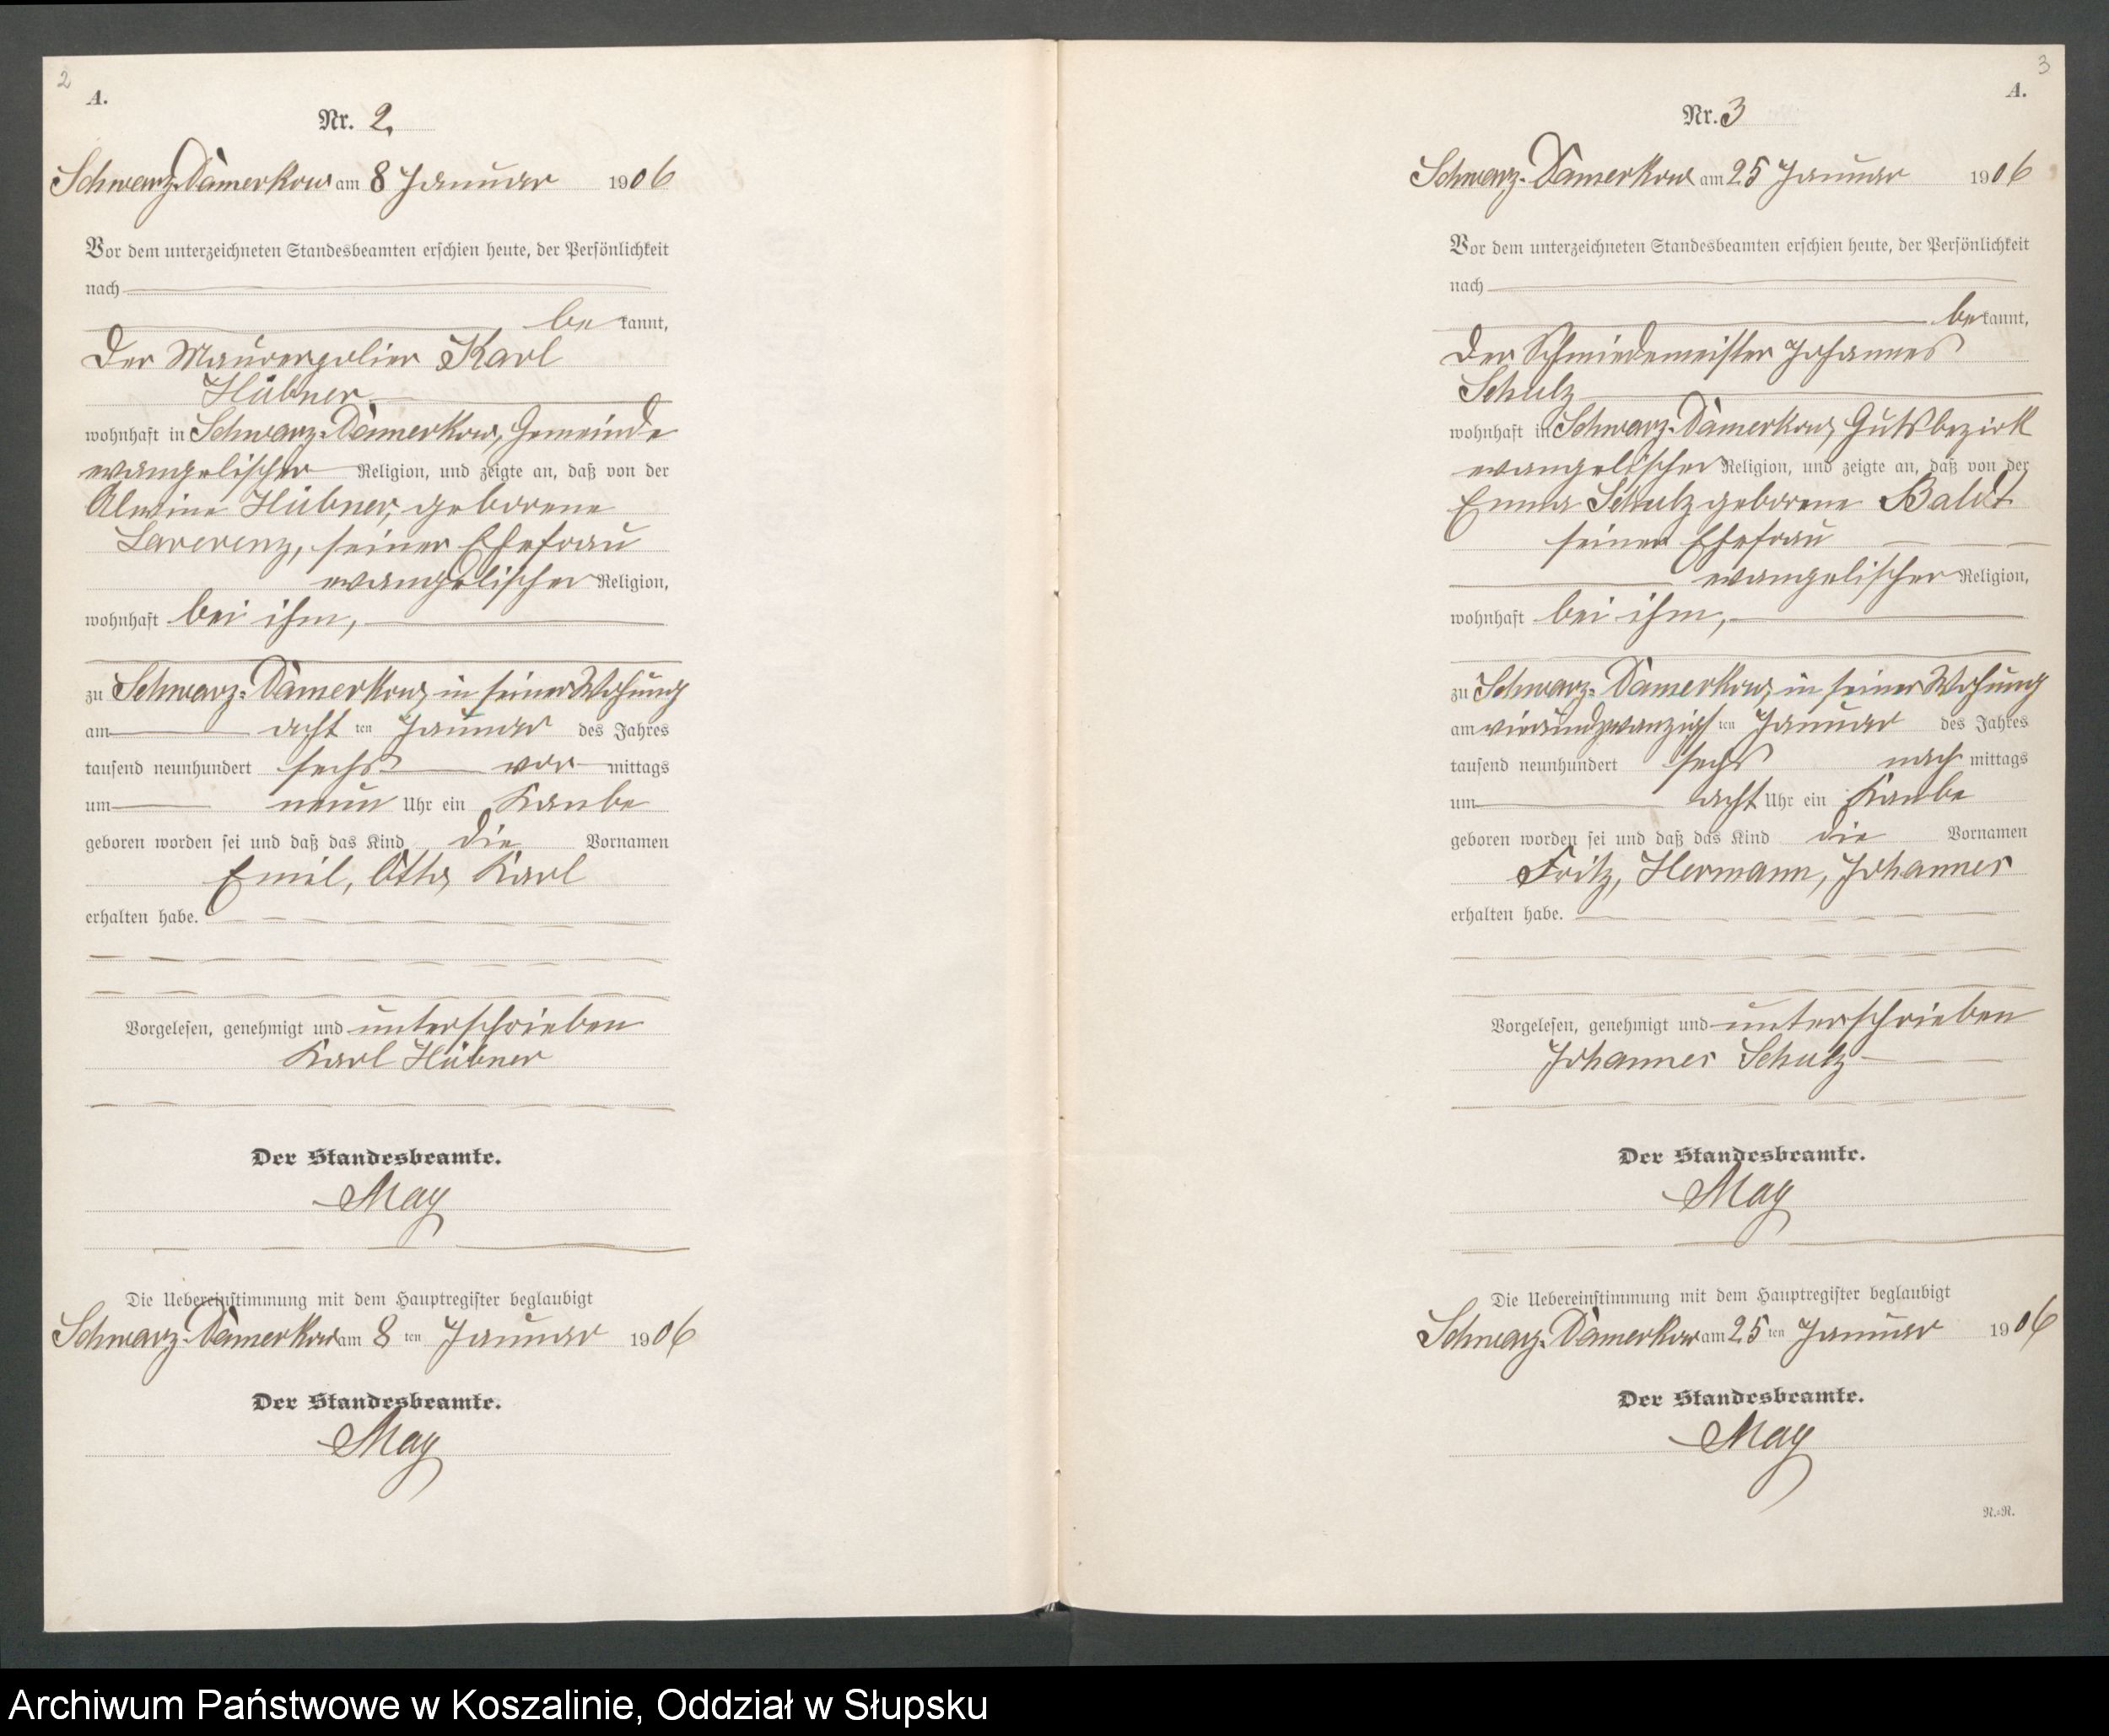 2
A.
Nr. 2.
Schwarz-Damerkow am 8 Januar 1906
Vor dem unterzeichneten Standesbeamten erschien heute, der Persönlichkeit
nach
be kannt,
Der Maurerpolier Karl
Hübner
wohnhaft in Schwarz-Damerkow, Gemeinde
evangelischer Religion, und zeigte an, daß von der
Alwine Hübner, geborene
seiner Ehefrau
evangelischer Religion,
wohnhaft bei ihm,
zu Schwarz-Damerkow, in seiner Wohung
am acht ten Januar des Jahres
tausend neunhundert sechs vor mittags
um neun Uhr ein Knabe
geboren worden sei und daß das Kind die Vornamen
Emil, Otto, Karl
erhalten habe.
Vorgelesen, genehmigt und unterschrieben
Karl Hübner
Der Standesbeamte.
May
Die Uebereinstimmung mit dem Hauptregister beglaubigt
Schwarz-Damerkow am 8 ten Januar 1906
Der Standesbeamte.
May
3
A.
Nr. 3
Schwarz-Damerkow am 25 Januar 1906
Vor dem unterzeichneten Standesbeamten erschien heute, der Persönlichkeit
nach
be kannt,
Der Schmiedemeister Johannes
Schulz
wohnhaft in Schwarz-Damerkow, Gutsbezirk
evangelischer Religion, und zeigte an, daß von der
Emma Schulz geborene
seiner Ehefrau
evangelischer Religion,
wohnhaft bei ihm,
zu Schwarz-Damerkow, in seiner Wohung
am vierundzwanzigs ten Januar des Jahres
tausend neunhundert sechs nach mittags
um acht Uhr ein Knabe
geboren worden sei und daß das Kind die Vornamen
Fritz, Hermann, Johannes
erhalten habe.
Vorgelesen, genehmigt und unterschrieben
Johannes Schulz
Der Standesbeamte.
May
Die Uebereinstimmung mit dem Hauptregister beglaubigt
Schwarz-Damerkow am 25 ten Januar 1906
Der Standesbeamte.
May
N.-N.
Archiwum Państwowe w Koszalinie, Oddział w Słupsku